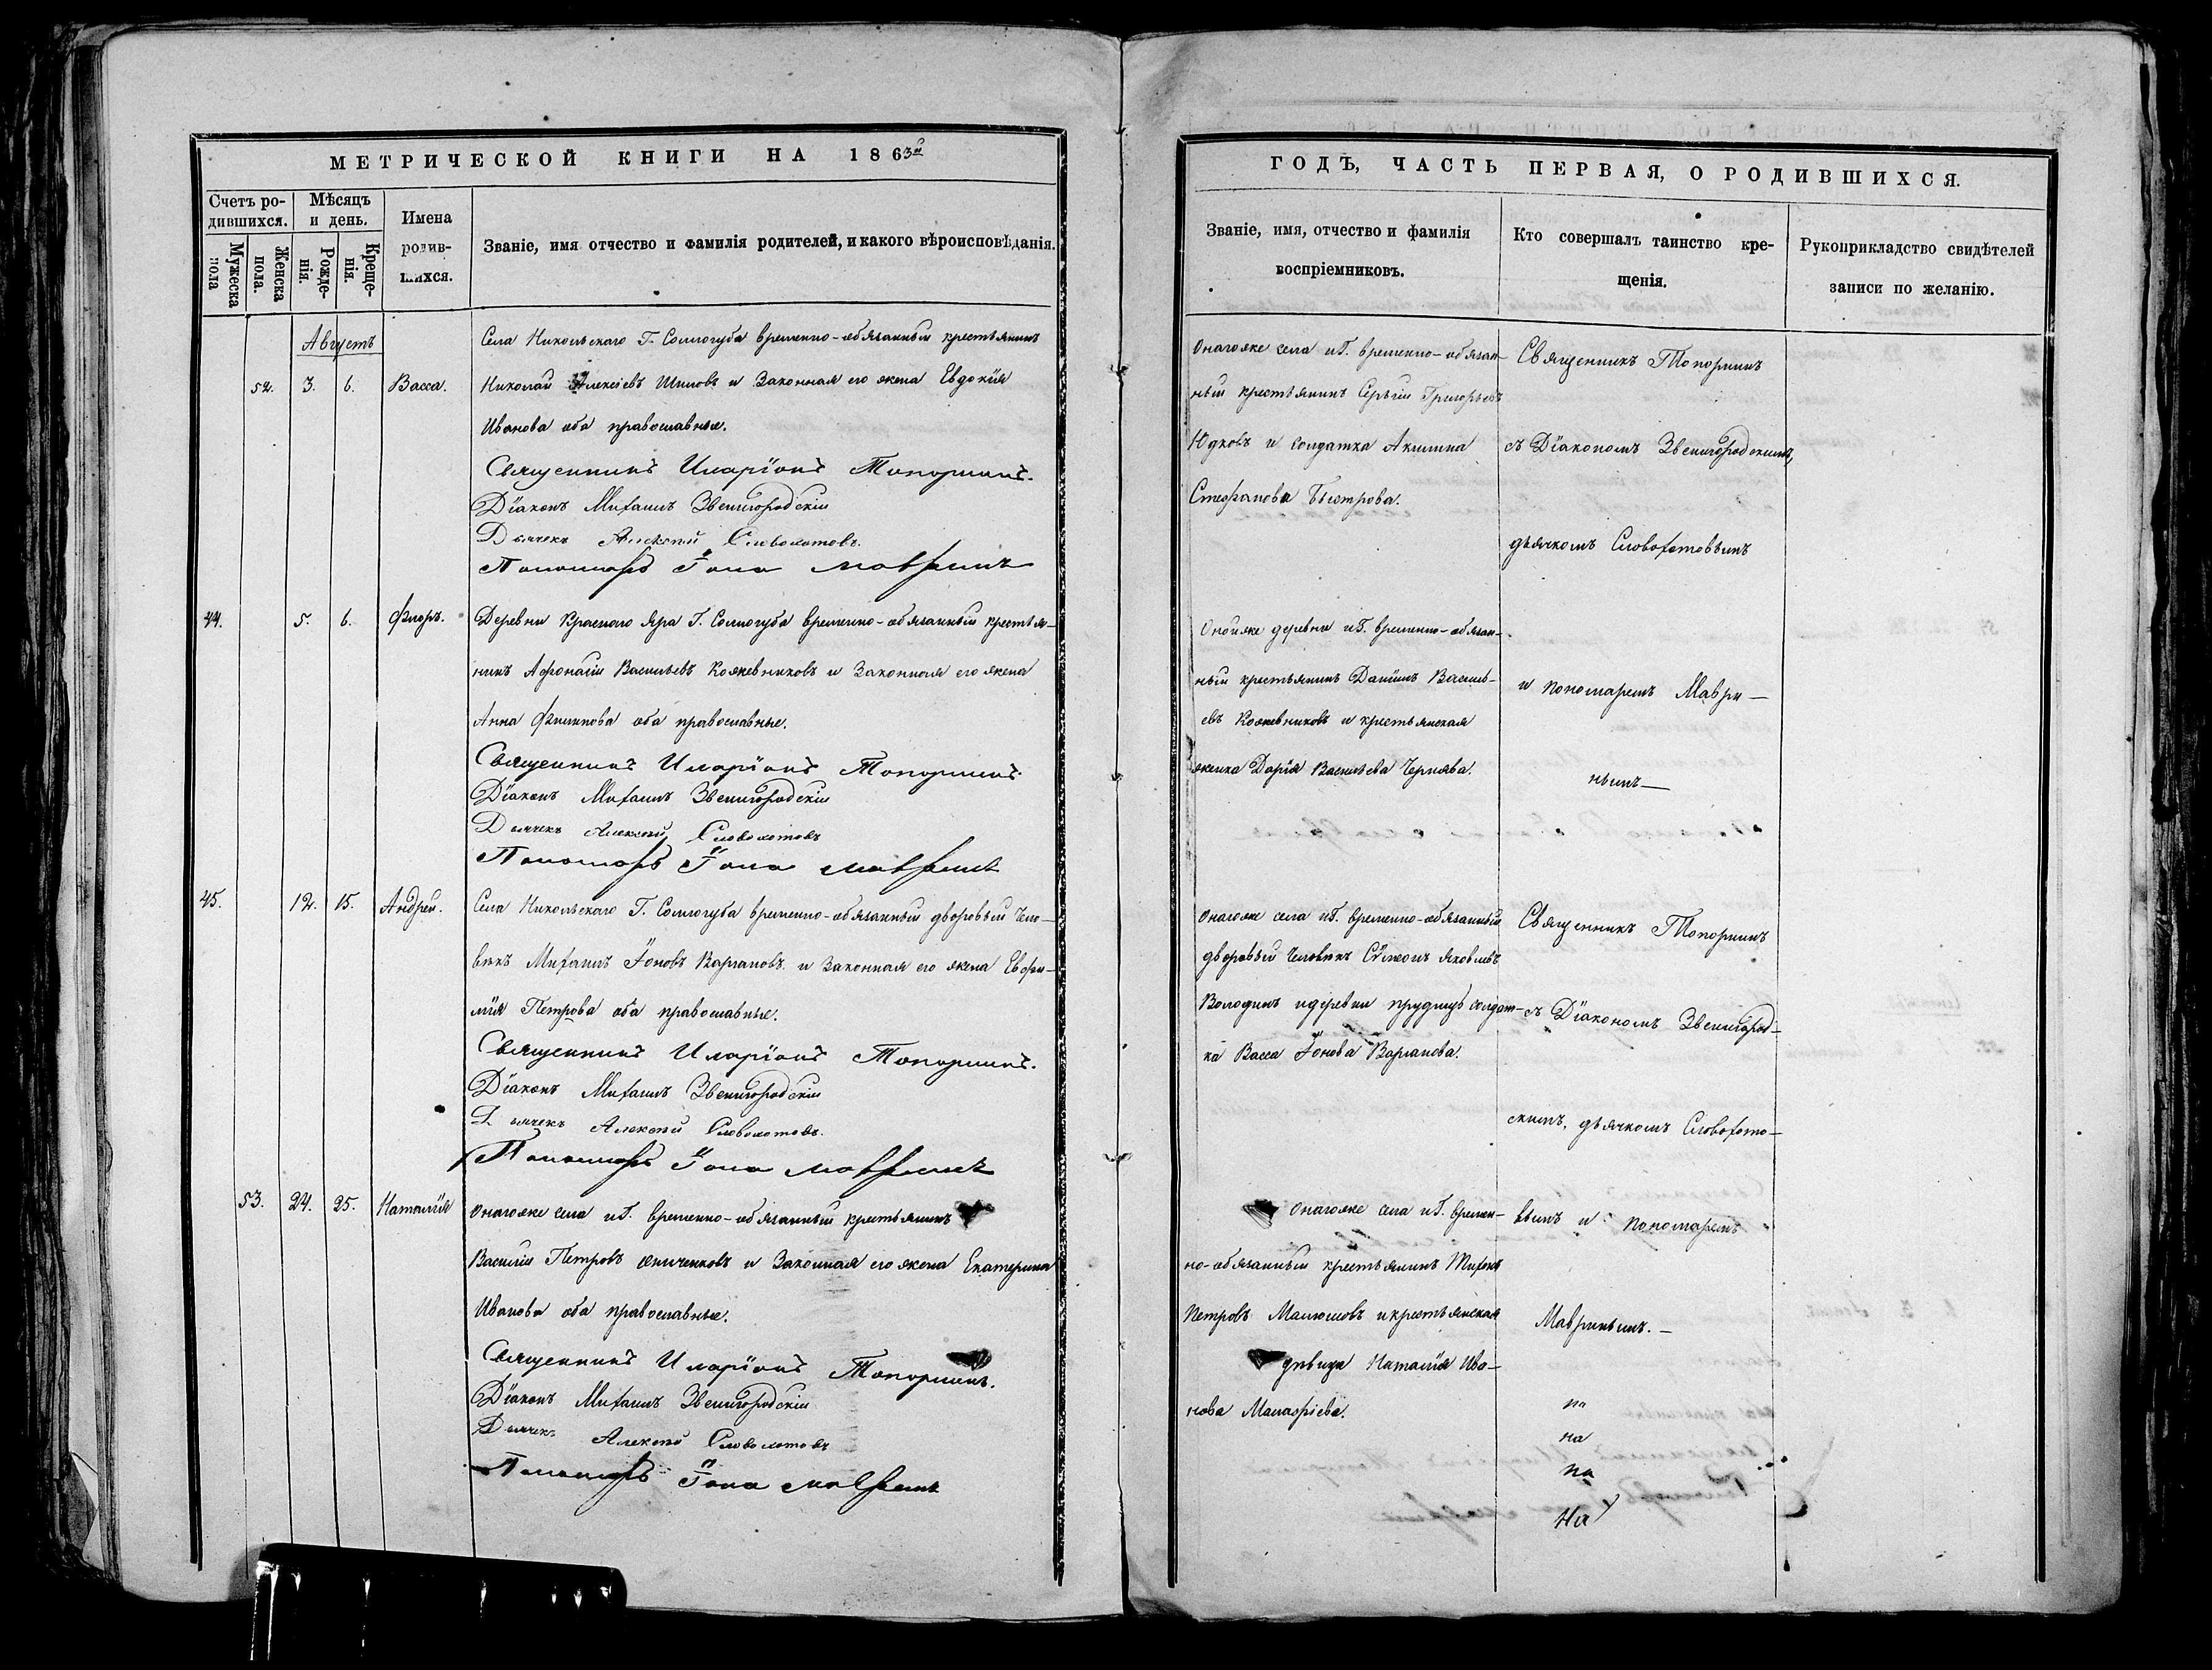 МЕТРИЧЕСКОЙ КНИГИ НА 1863й
Счетъ ро-
дившихся.
Мѣсяцъ
и день.
Имена
родив-
шихся.
Званіе, имя отчество и фамилія родителей, и какого вѣроисповѣданія.
Мужеска
пола
Женска
пола.
Рожде-
нія.
Креще-
нія.
Августъ
Села Никольскаго Г. Соллогуба временно-обязанный крестьянинъ
52. 3. 6. Васса. Николай Алексіевъ Шиловъ и Законная его жена Евдокія
Иванова оба православные.
Священникъ Иларіонъ Топорнинъ.
Діаконъ Михаилъ Звенигородскій
Дьячекъ Алексѣй Словохотовъ.
Пономарь Іона Мавринъ
44. 5. 6. Флоръ. Деревни Краснаго Яра Г. Соллогуба временно-обязанный крестья-
нинъ Афонасій Васильевъ Кожевниковъ и Законная его жена
Анна Филиппова оба православные.
Священникъ Иларіонъ Топорнинъ.
Діаконъ Михаилъ Звенигородскій
Дьячекъ Алексѣй Словохотовъ
Пономарь Іона Мавринъ
45. 12. 15. Андрей. Села Никольскаго Г. Соллогуба временно-обязанный дворовый чело-
вѣкъ Михаилъ Іоновъ Варлановъ и Законная его жена Евфи-
мія Петрова оба православные.
Священникъ Иларіонъ Топорнинъ.
Діаконъ Михаилъ Звенигородскій
Дьячекъ Алексѣй Словохотовъ.
Пономарь Іона Мавринъ
53. 24. 25. Наталія Онагоже села и Г. временно-обязанный крестьянинъ
Василій Петровъ и Законная его жена Екатерина
Иванова оба православные.
Священникъ Иларіонъ Топорнинъ.
Діаконъ Михаилъ Звенигородскій
Дьячекъ Алексѣй Словохотовъ
Пономарь Іона Мавринъ
ГОДЪ, ЧАСТЬ ПЕРВАЯ, О РОДИВШИХСЯ.
Званіе, имя, отчество и фамилія
воспріемниковъ.
Кто совершалъ таинство кре-
щенія.
Рукоприкладство свидѣтелей
записи по желанію.
Онагоже села и Г. временно-обязан-
ный крестьянинъ Сергій Григорьевъ
Юдковъ и солдатка Акилина
Стефанова Быстрова.
Священникъ Топорнинъ
съ Діакономъ Звенигородскимъ,
дьячкомъ Словохотовымъ
Онойже деревни и Г. временно-обязан-
ный крестьянинъ Даніилъ Василь-
евъ Кожевниковъ и крестьянская
женка Дарія Васильева Чернява.
и пономаремъ Маври-
нымъ
Онагоже села и Г. временно-обязанный
дворовый человѣкъ Сѵмеонъ Яковлевъ
Володинъ и деревни солдат-
ка Васса Іонова Варланова.
Священникъ Топорнинъ
съ Діакономъ Звенигород-
скимъ, дьячкомъ Словохото-
Онагоже села и Г. времен-
но-обязанный крестьянинъ Тихонъ
Петровъ и крестьянская
дѣвица Наталія Ива-
нова
вымъ и пономаремъ
Мавринымъ.
на
на
на
На